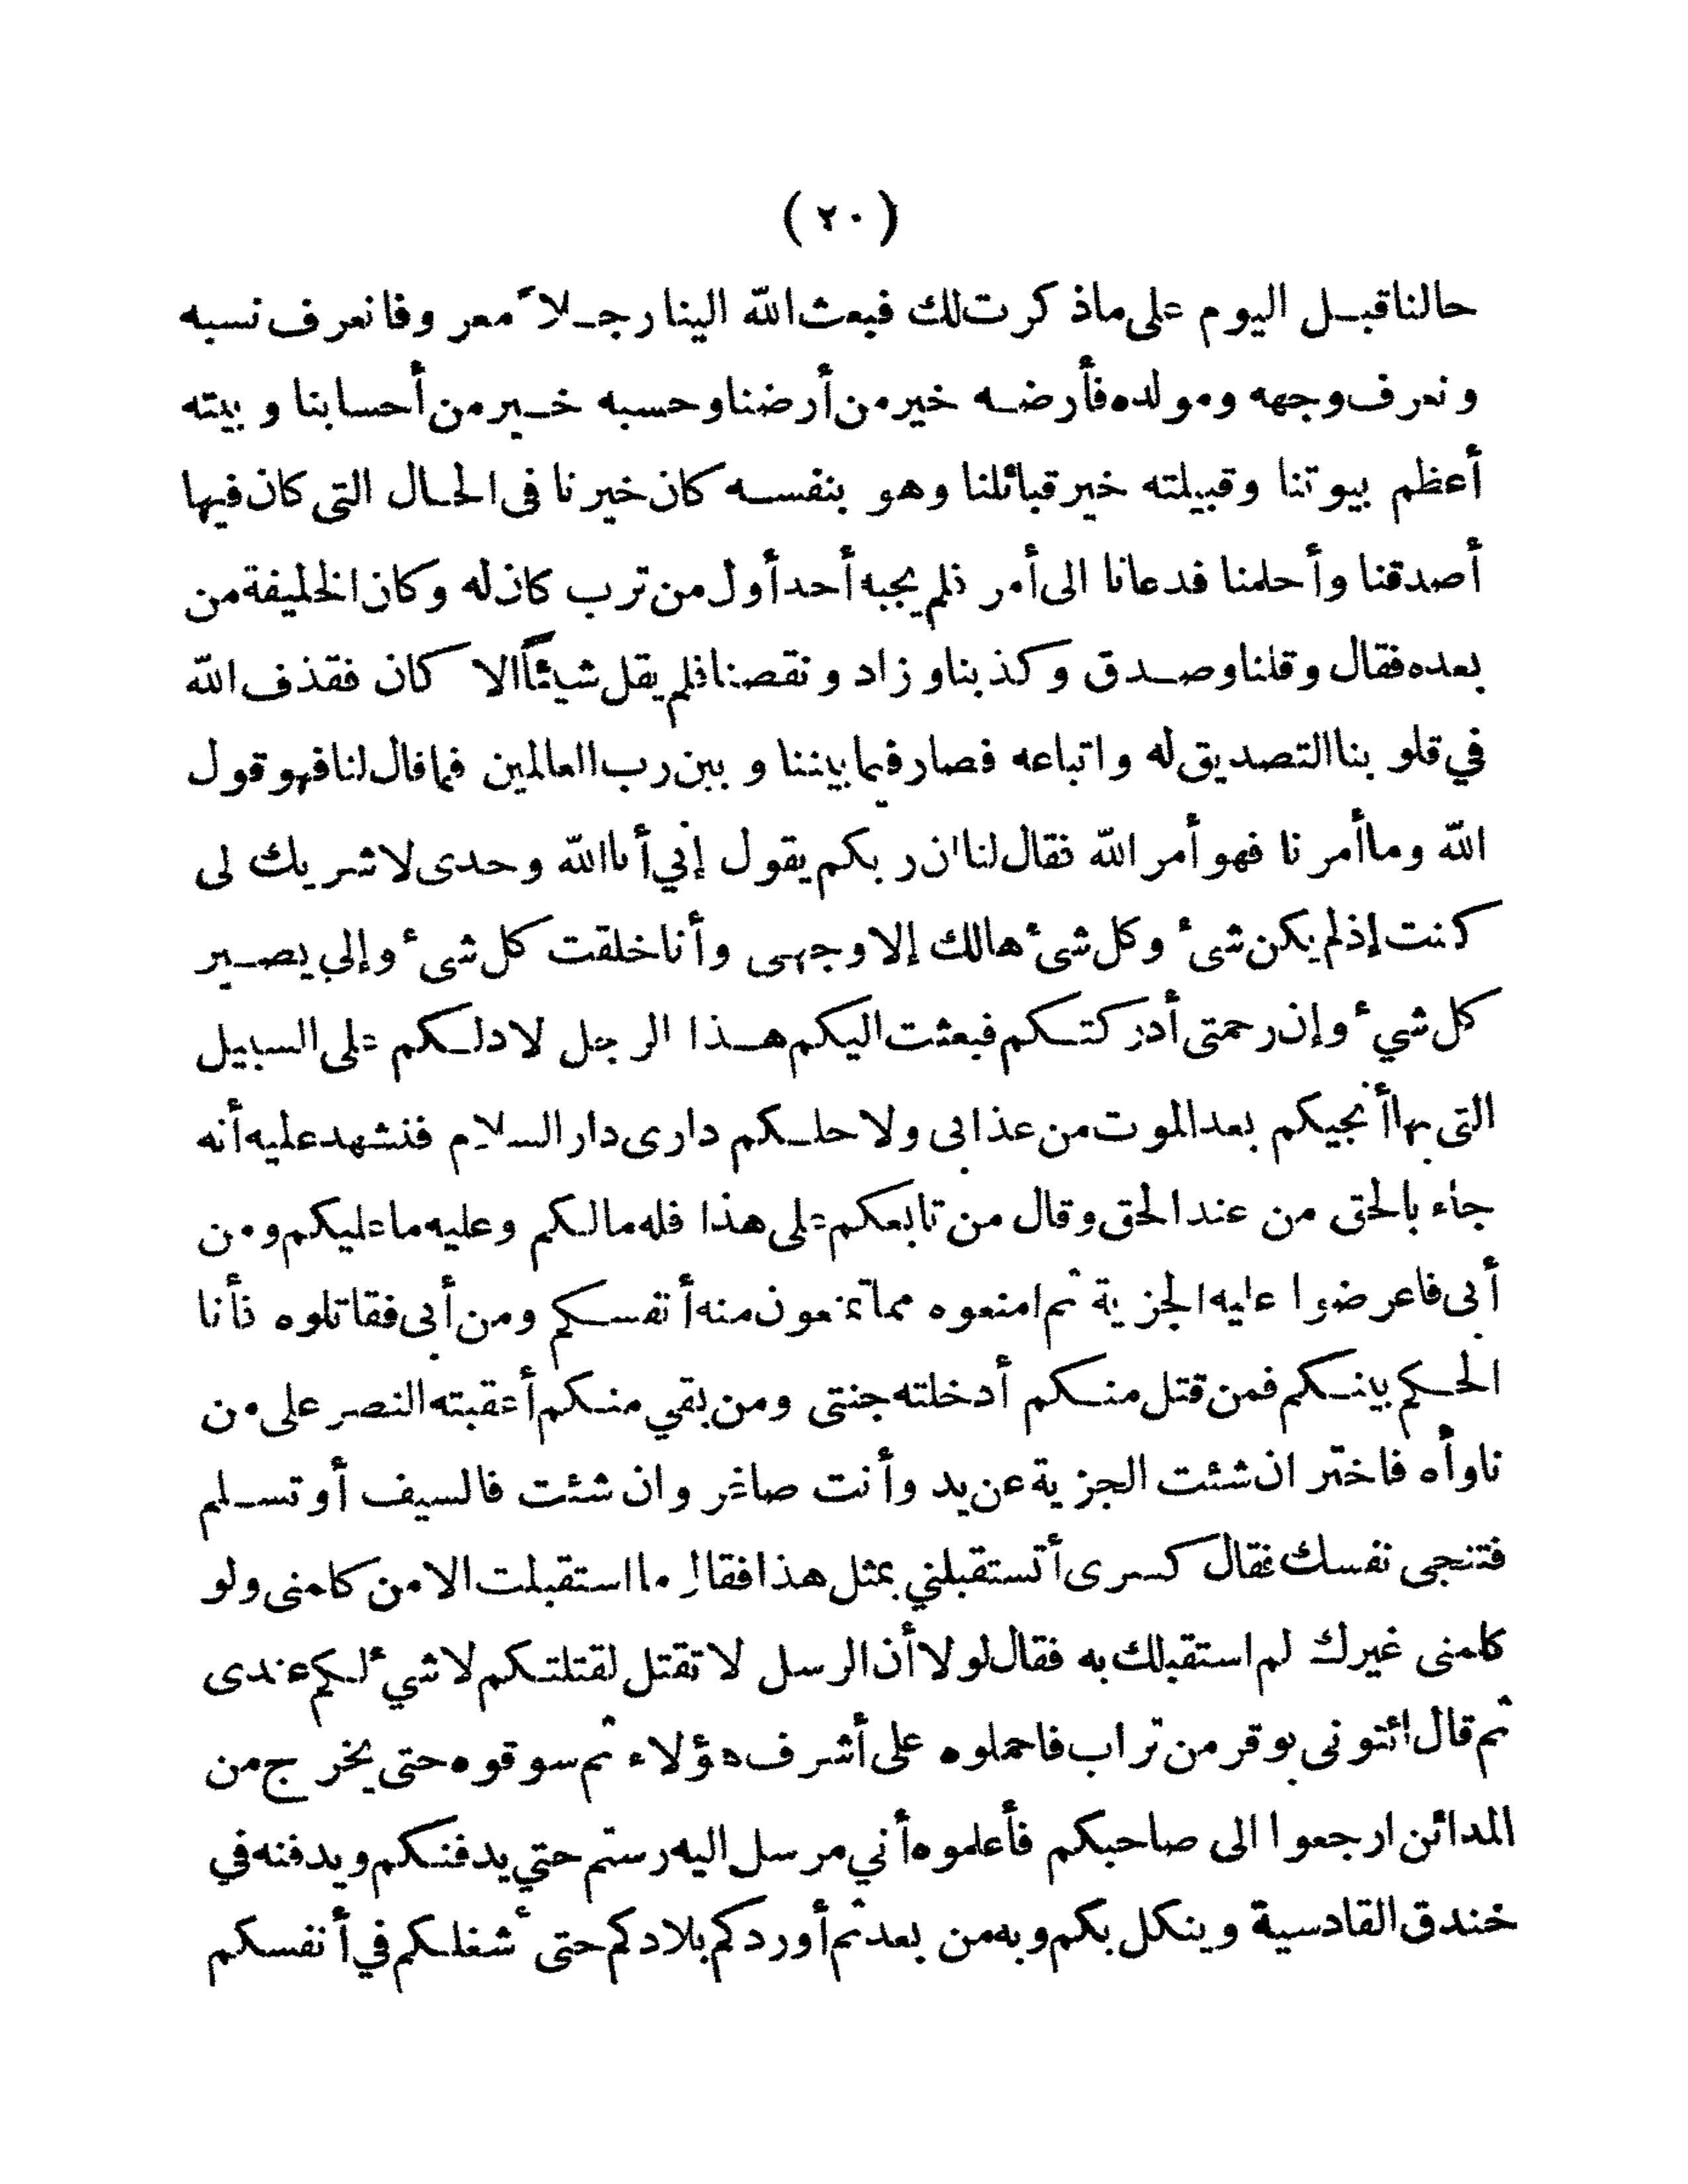 ( ٢٠ )
حالنا قبل اليوم على ماذكرت لك فبعث الله الينا رجلاً معروفا نعرف نسبه
ونعرف وجهه ومولده فأرضه خير من أرضنا وحسبه خير من أحسابنا وبيته
أعظم بيوتنا وقبيلته خير قبائلنا وهو بنفسه كان خيرنا فى الحال التى كان فيها
أصدقنا وأحلمنا فدعانا الى أمر فلم يجبه أحد أول من ترب كان له وكان الخليفة من
بعده فقال وقلنا وصدق وكذبنا وزاد ونقصنا فلم يقل شيئاً الا كان فقذف الله
في قلوبنا التصديق له واتباعه فصار فيما بيننا وبين رب العالمين فما قال لنا فهو قول
الله وما أمرنا فهو أمر الله فقال لنا ان ربكم يقول إني أنا الله وحدى لا شريك لى
كنت إذ لم يكن شىء وكل شىء هالك إلا وجهى وأنا خلقت كل شىء وإلي يصير
كل شيء وإن رحمتى أدركتكم فبعثت اليكم هذا الرجل لادلكم على السبيل
التى بها أنجيكم بعد الموت من عذابى ولاحلكم دارى دار السلام فنشهد عليه أنه
جاء بالحق من عند الحق وقال من تابعكم على هذا فله مالكم وعليه ما عليكم ومن
أبى فاعرضوا عليه الجزية ثم امنعوه مما تمنعون منه أنفسكم ومن أبى فقاتلوه فأنا
الحكم بينكم فمن قتل منكم أدخلته جنتى ومن بقي منكم أعقبته النصر على من
ناوأه فاختر ان شئت الجزية عن يد وأنت صاغر وان شئت فالسيف أو تسلم
فتنجى نفسك فقال كسرى أتستقبلني بمثل هذا فقال ما استقبلت الا من كلمنى ولو
كلمنى غيرك لم استقبلك به فقال لولا أن الرسل لا تقتل لقتلتكم لا شيء لكم عندى
ثم قال ائتونى بوقر من تراب فاحملوه على أشرف هؤلاء ثم سوقوه حتى يخرج من
المدائن ارجعوا الى صاحبكم فأعلموه أني مرسل اليه رستم حتي يدفنكم ويدفنه في
خندق القادسية وينكل بكم وبه من بعد ثم أوردكم بلادكم حتى أشغلكم في أنفسكم